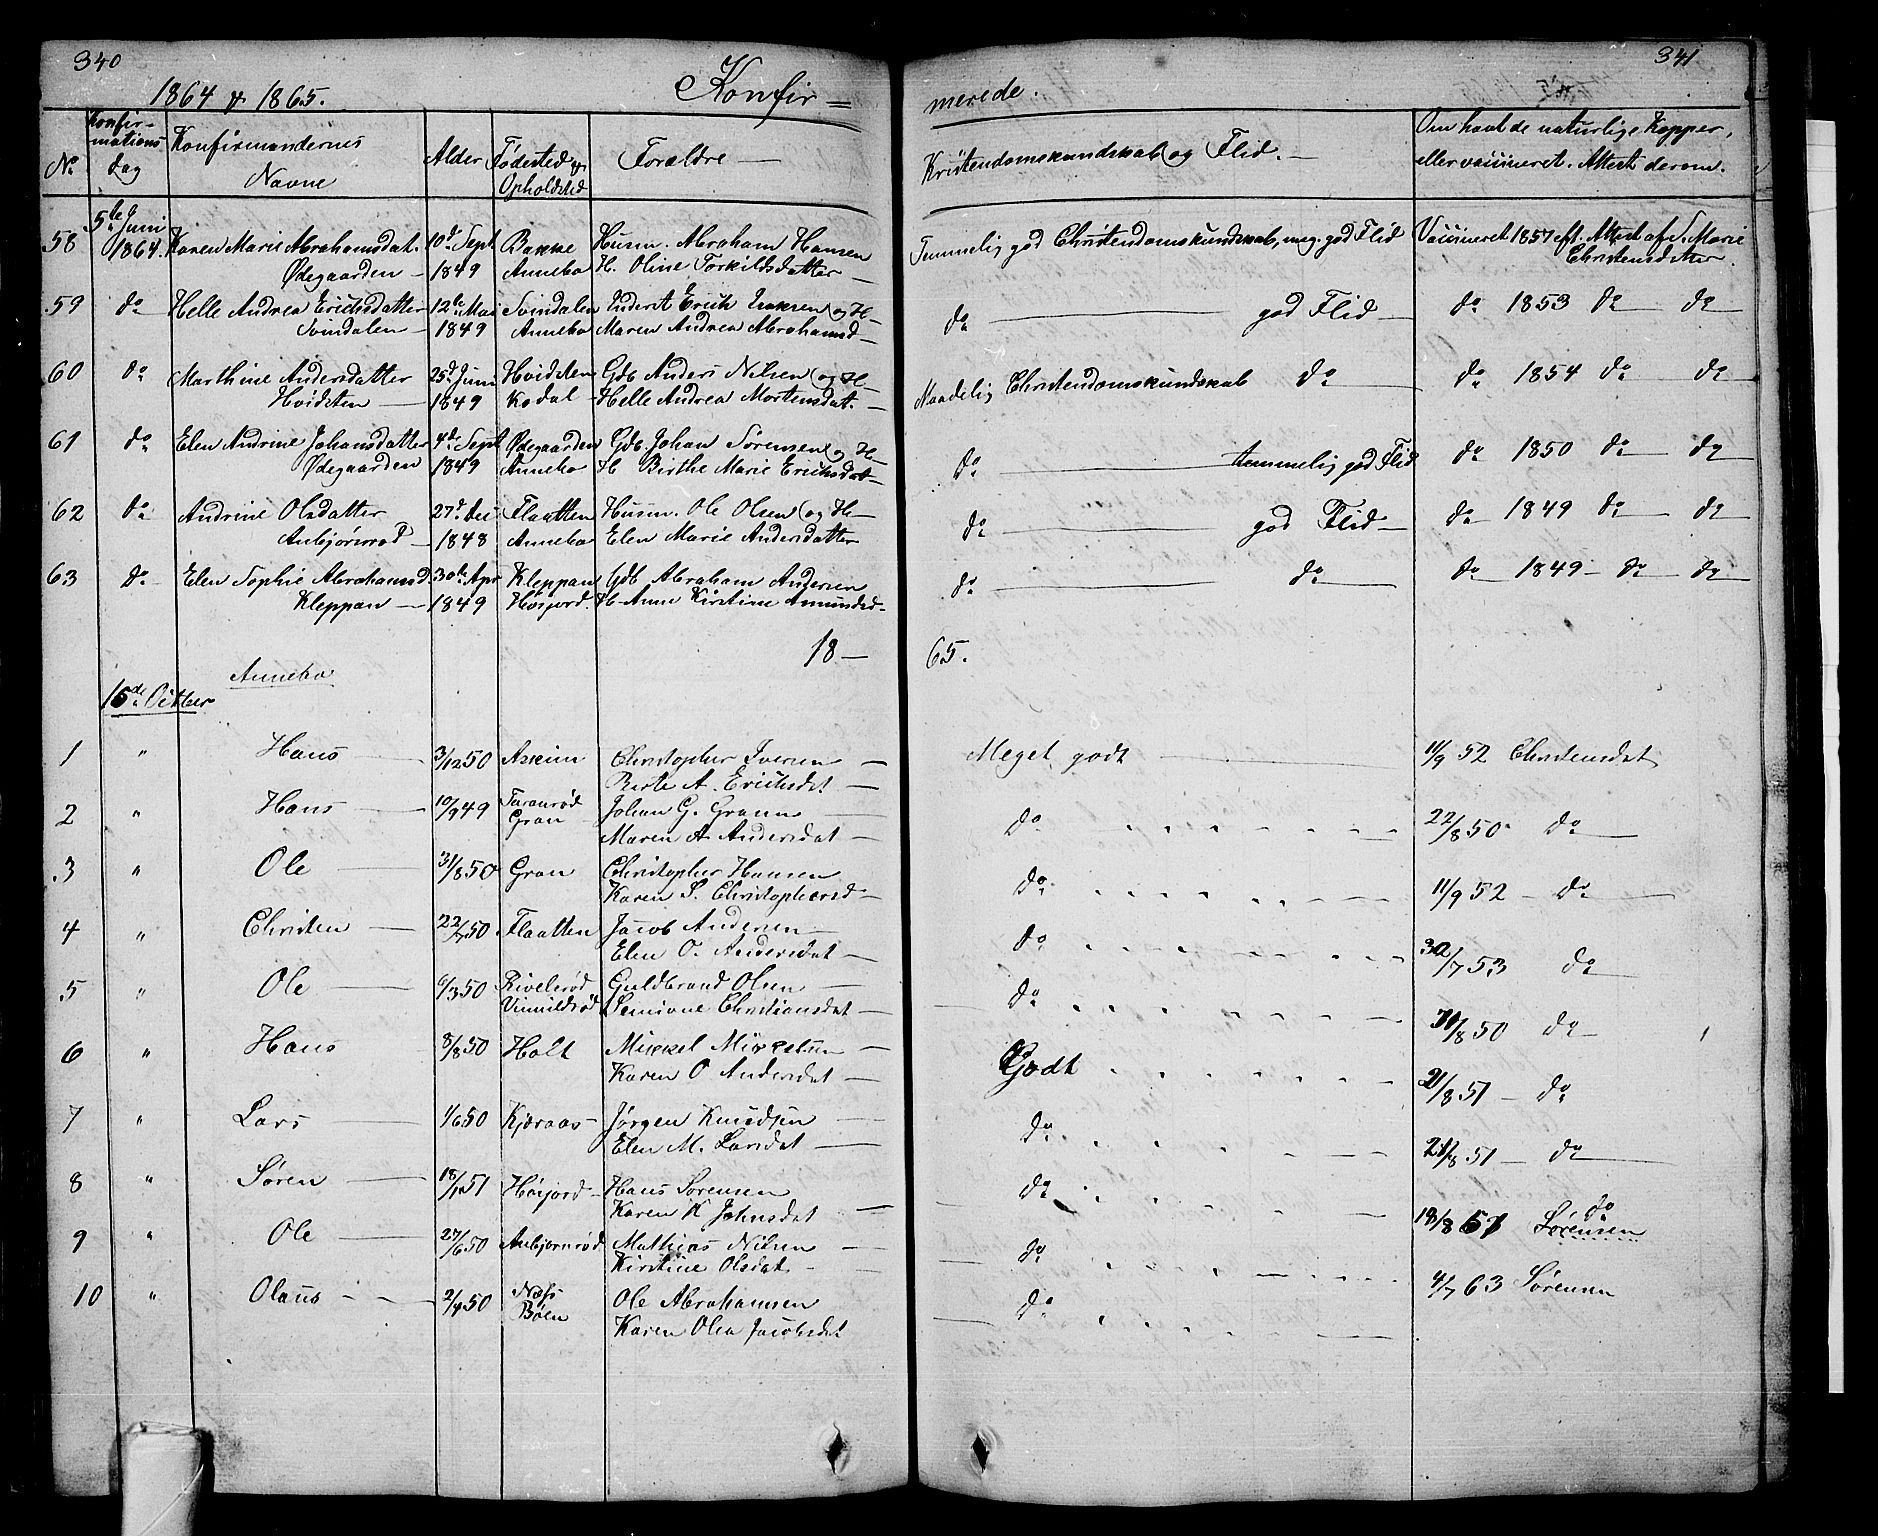 340
1864 & 1865.
Konfir=
No
Konfir-
mations
dag
Konfirmandernes
Navne
Alder
Fødested &
Opholdsted
Forældre
58 5te Juni 1864 Karen Marie Abrahamsdat. 10d Sept Bakke Husm. Abraham Hansen
Ødegaarden 1849 Annebo H. Oline Torkildsdatter
59 do Helle Andrea Erichsdatter 12te Mai Svindalen Inderst Erich Isaksen og H-
Svindalen 1849 Annebo Maren Andrea Abrahamsd
60 do Marthine Andersdatter 25d Juni Hvidsten Gdb Anders Nilsen og H-
Hvidsten 1849 Kodal Helle Andrea Mortensdat.
61 do Elen Andrine Johansdatter 4de Sept Ødegaarden Gdb. Johan Sørensen og H-
Ødegaarden 1849 Annebo H Birthe Marie Erichsdat
62 do Andrine Olsdatter 27d Dec Flaatten Husm. Ole Olsen og H-
Anbjørnrød 1848 Annebo Elen Marie Andersdatter
63 do Elen Sophie Abrahamsd. 30te Apr Kleppan Gdb Abraham Andersen
Kleppan 1849 Høijord. H Anne Kirstine Amundsd-
18-
Annebo
15de Octber
1 " Hans 3/12 50 Askim Christopher Iversen
Berte A. Erichsdat
2 " Hans 10/9 49 Taranrød Johan G. Grann
Gran Maren A Andersdat
3 " Ole 31/8 50 Gran Christopher Hansen
Karen S. Christophersd
4 " Christen 22/7 50 Flaatten Jacob Andersen
Elen O. Andersdat
5 " Ole 6/3 50 Rivelsrød Guldbrand Olsen
Vinnildrød Semione Christiansdat
6 " Hans 8/8 50 Holt Mikkel Mikkelsen
Karen O Andersdat
7 " Lars 1/6 50 Kjæraas Jørgen Knudsen
Elen M. Larsdat
8 " Søren 18/1 51 Høijord Hans Sørensen
Karen K Johnsdat
9 " Ole 27/6 50 Anbjørnrød Mathias Nilsen
Kirstine Olsdat
10 " Olaus 2/9 50 Næss Ole Abrahamsen
Bøen Karen Olea Jacobsdat
341
merede.
Kristendomskundskab og Flid.
Om havt de naturlige Kopper,
eller vaccineret. Attest derom.
Temmelig god Christendomskundskab, meg. god Flid Vaccineret 1857 eft. Attest af S. Marie
Christensdatter
do god Flid do 1853 do do
Maadelig Christendomskundskab do do 1854 do do
do temmelig god Flid do 1850 do do
do god Flid do 1849 do do
do do do 1849 do do
65.
Meget godt 11/9 52 Christensdat
do 22/8 50 do
do 11/9 52 do
do 30/7 53 do
do 31/8 50 do
Godt 21/8 51 do
do 21/8 51 do
do
do 19/8 51 Sørensen
do 4/7 63 Sørensen
do